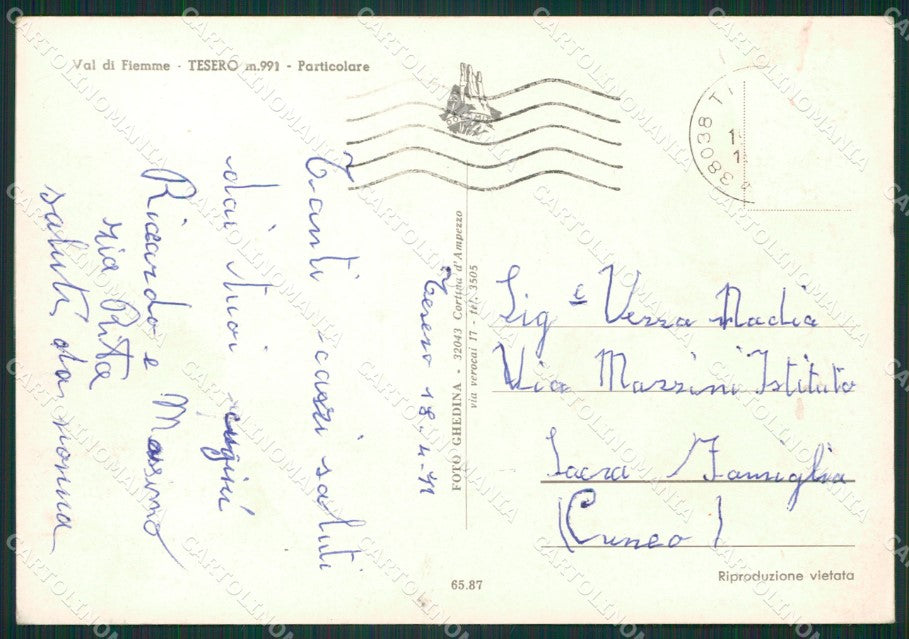 Val di Fiemme - TESERO m.991 - Particolare
Tesero 18-4-71
Tanti cari saluti
dai tuoi cugini
Riccardo e Massimo
zia Rita
saluti da nonna
FOTO GHEDINA - 32043 Cortina d'Ampezzo
via verocai 17 - tel. 3505
38038 T
Sig.e Verra Nadia
Via Mazzini Istituto
Sacra Famiglia
(Cuneo)
65.87
Riproduzione vietata
CARTOLINOMANIA